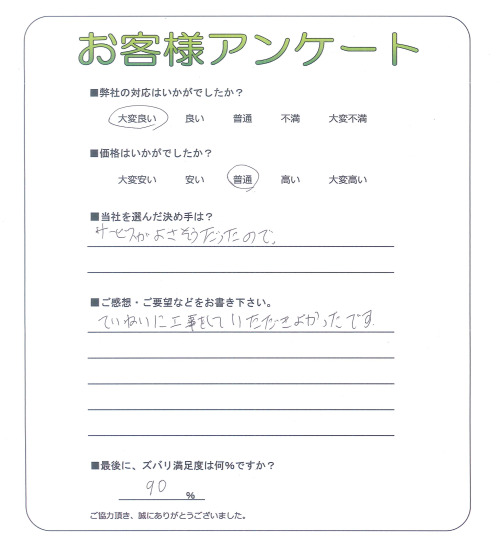 お客様アンケート
■弊社の対応はいかがでしたか？
大変良い 良い 普通 不満 大変不満
■価格はいかがでしたか？
大変安い 安い 普通 高い 大変高い
■当社を選んだ決め手は？
サービスがよさそうだったので。
■ご感想・ご要望などをお書き下さい。
ていねいに工事をしていただきよかったです
■最後に、ズバリ満足度は何％ですか？
90 %
ご協力頂き、誠にありがとうございました。